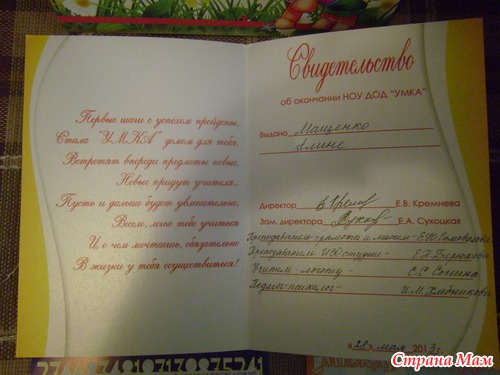 Первые шаги с успехом пройдены,
Стала "УМКА" домом для тебя,
Встретят впереди предметы новые,
Новые придут учителя...
Пусть и дальше будет увлекательно,
Весело, легко тебе учиться
И, о чем мечтаешь, обязательно
В жизни у тебя осуществиться!
Свидетельство
об окончании НОУ ДОД "УМКА"
Выдано Мащенко
Алине
Директор Е.В. Кремнева
Зам. директора Е.А. Сухоцкая
Преподаватель грамоты и матем -
Преподаватель ИЗОстудии -
Учитель - логопед - С.С. Сонина
Педагог-психолог - И.М. Хледникова
«28» мая 2013г.
Страна Мам